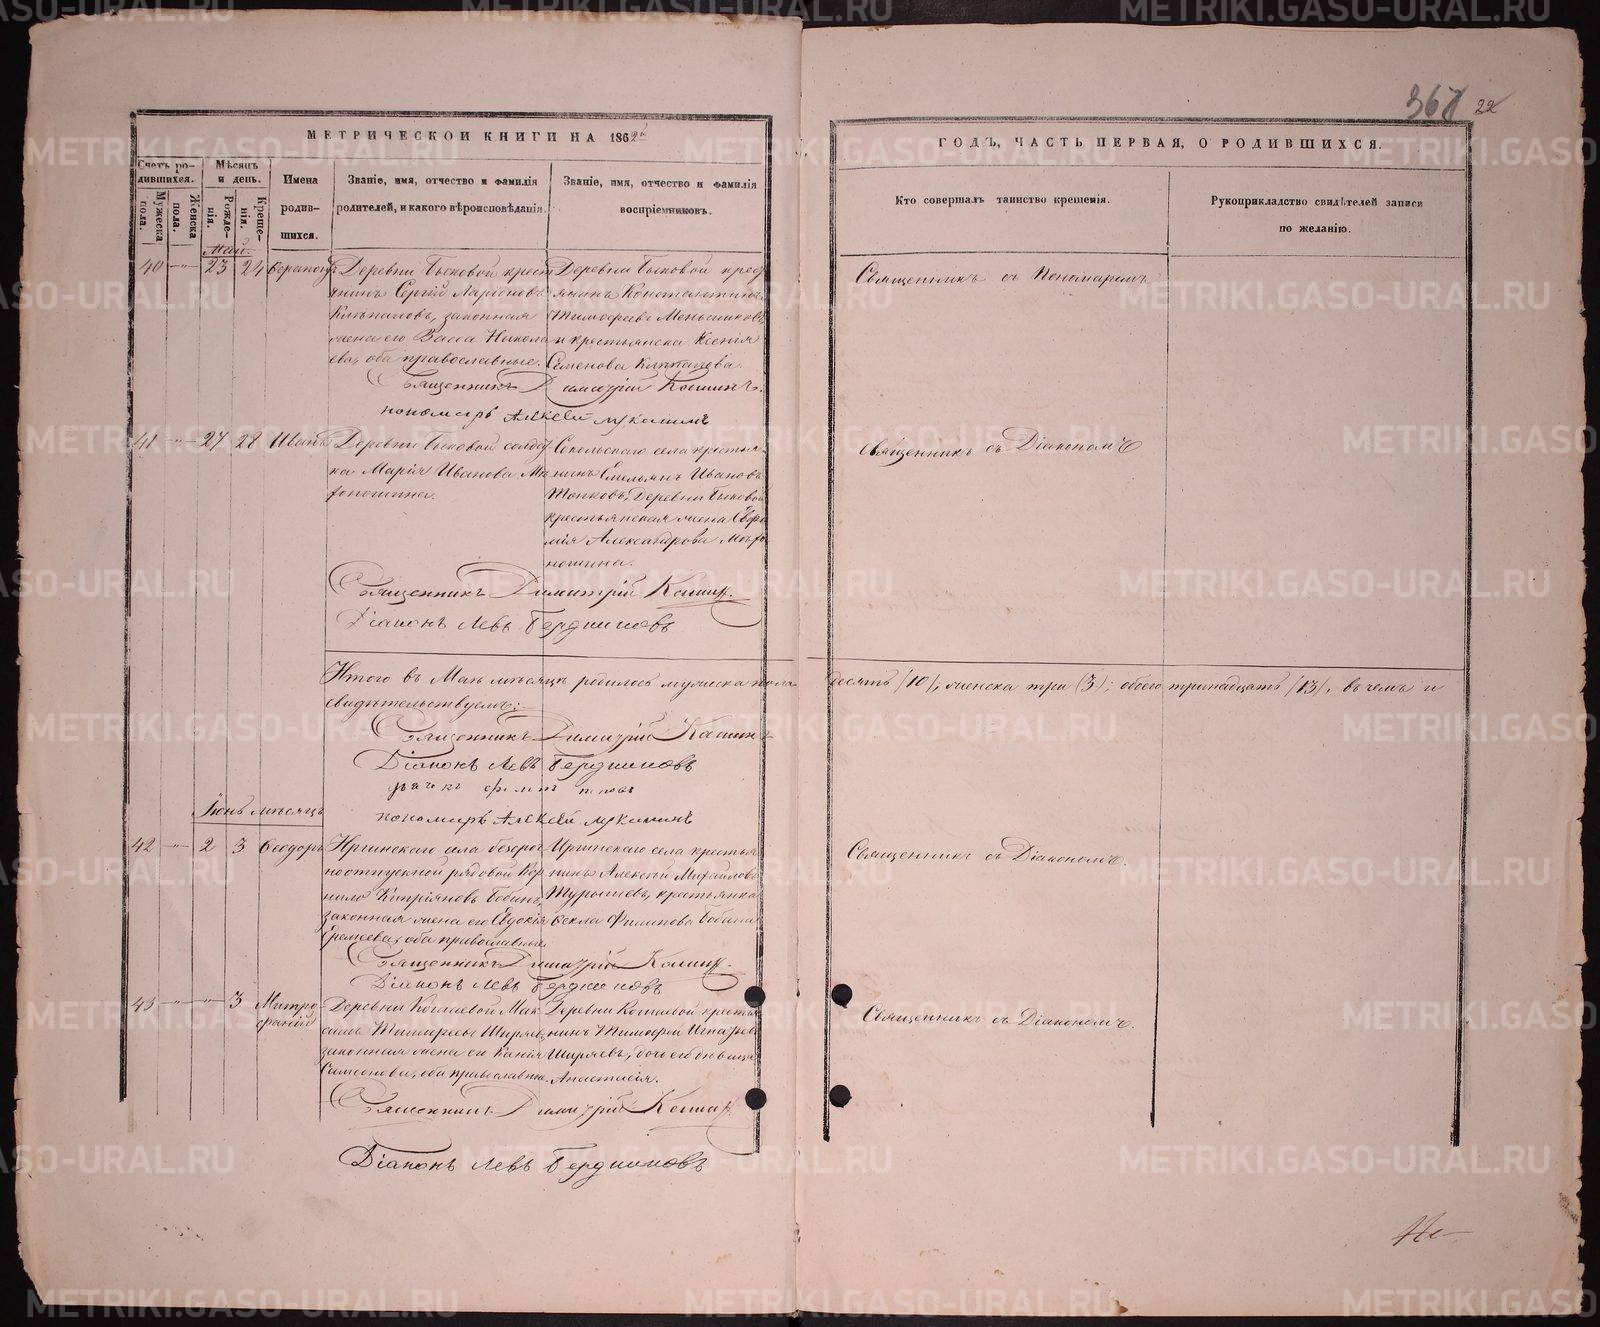 367 22
МЕТРИЧЕСКОЙ КНИГИ НА 1862
ГОДЪ, ЧАСТЬ ПЕРВАЯ, О РОДИВШИХСЯ.
Счетъ родившихся.
Мужеска пола.
Женска пола.
Мѣсяцъ и день.
Рожденія.
Крещенія.
Имена родившихся.
Званіе, имя, отчество и фамилія
родителей, и какого вѣроисповѣданія.
Званіе, имя, отчество и фамилія
воспріемниковъ.
Кто совершалъ таинство крещенія.
Рукоприкладство свидѣтелей записи
по желанію.
Май.
40 23 24
Деревни Быковой крест
янинъ Сергій Ларіоновъ
законная
жена его Васса Никола
ева, оба православные.
Деревни Быковой крест
янинъ Константинъ
Тимофеевъ Меньшиковъ
и крестьянка Ксенія
Семенова
Священникъ съ Пономаремъ
Священникъ Димитрій Кашинъ.
пономарь Алексей Мукминъ
41 27 28 Иванъ
Деревни Быковой солдат
ка Марія Иванова
Сокольскаго села крестья
нинъ Емельянъ Ивановъ
Деревни Быковой
крестьянская жена Евфи
мія Александрова
Священникъ съ Діакономъ
Священникъ Димитрій Кашинъ.
Діаконъ Левъ Бердниковъ
Итого въ Маѣ мѣсяцѣ родилось мужеска пола
десять /10/; женска три (3); обоего тринадцать /13/, въ чемъ и
свидѣтельствуемъ:
Священникъ Димитрій Кашинъ
Діаконъ Левъ Бердниковъ
дьячекъ
пономарь Алексей Мукминъ
Іюнь мѣсяцъ
42 2 3 Ѳеодоръ
Иргинскаго села безсроч
ноотпускной рядовой Кор
нило Кипріяновъ Бабинъ,
законная жена его Евдокія
Еремеева, оба православные.
Иргинскаго села крестья
нинъ Алексѣй Михайловъ
Турышевъ, крестьянка
Ѳекла Филипова Бабина
Священникъ съ Діакономъ.
Священникъ Димитрій Кашинъ.
Діаконъ Левъ Бердниковъ
43 3 Митро
фаній
Деревни Мак
симъ Тимофеевъ Ширяевъ,
законная жена его
Самсонова, оба православные.
Деревни крестья
нинъ Тимофей
Ширяевъ,
Анастасія.
Священникъ съ Діакономъ.
Священникъ Димитрій Кашинъ.
Діаконъ Левъ Бердниковъ
METRIKI.GASO-URAL.RU